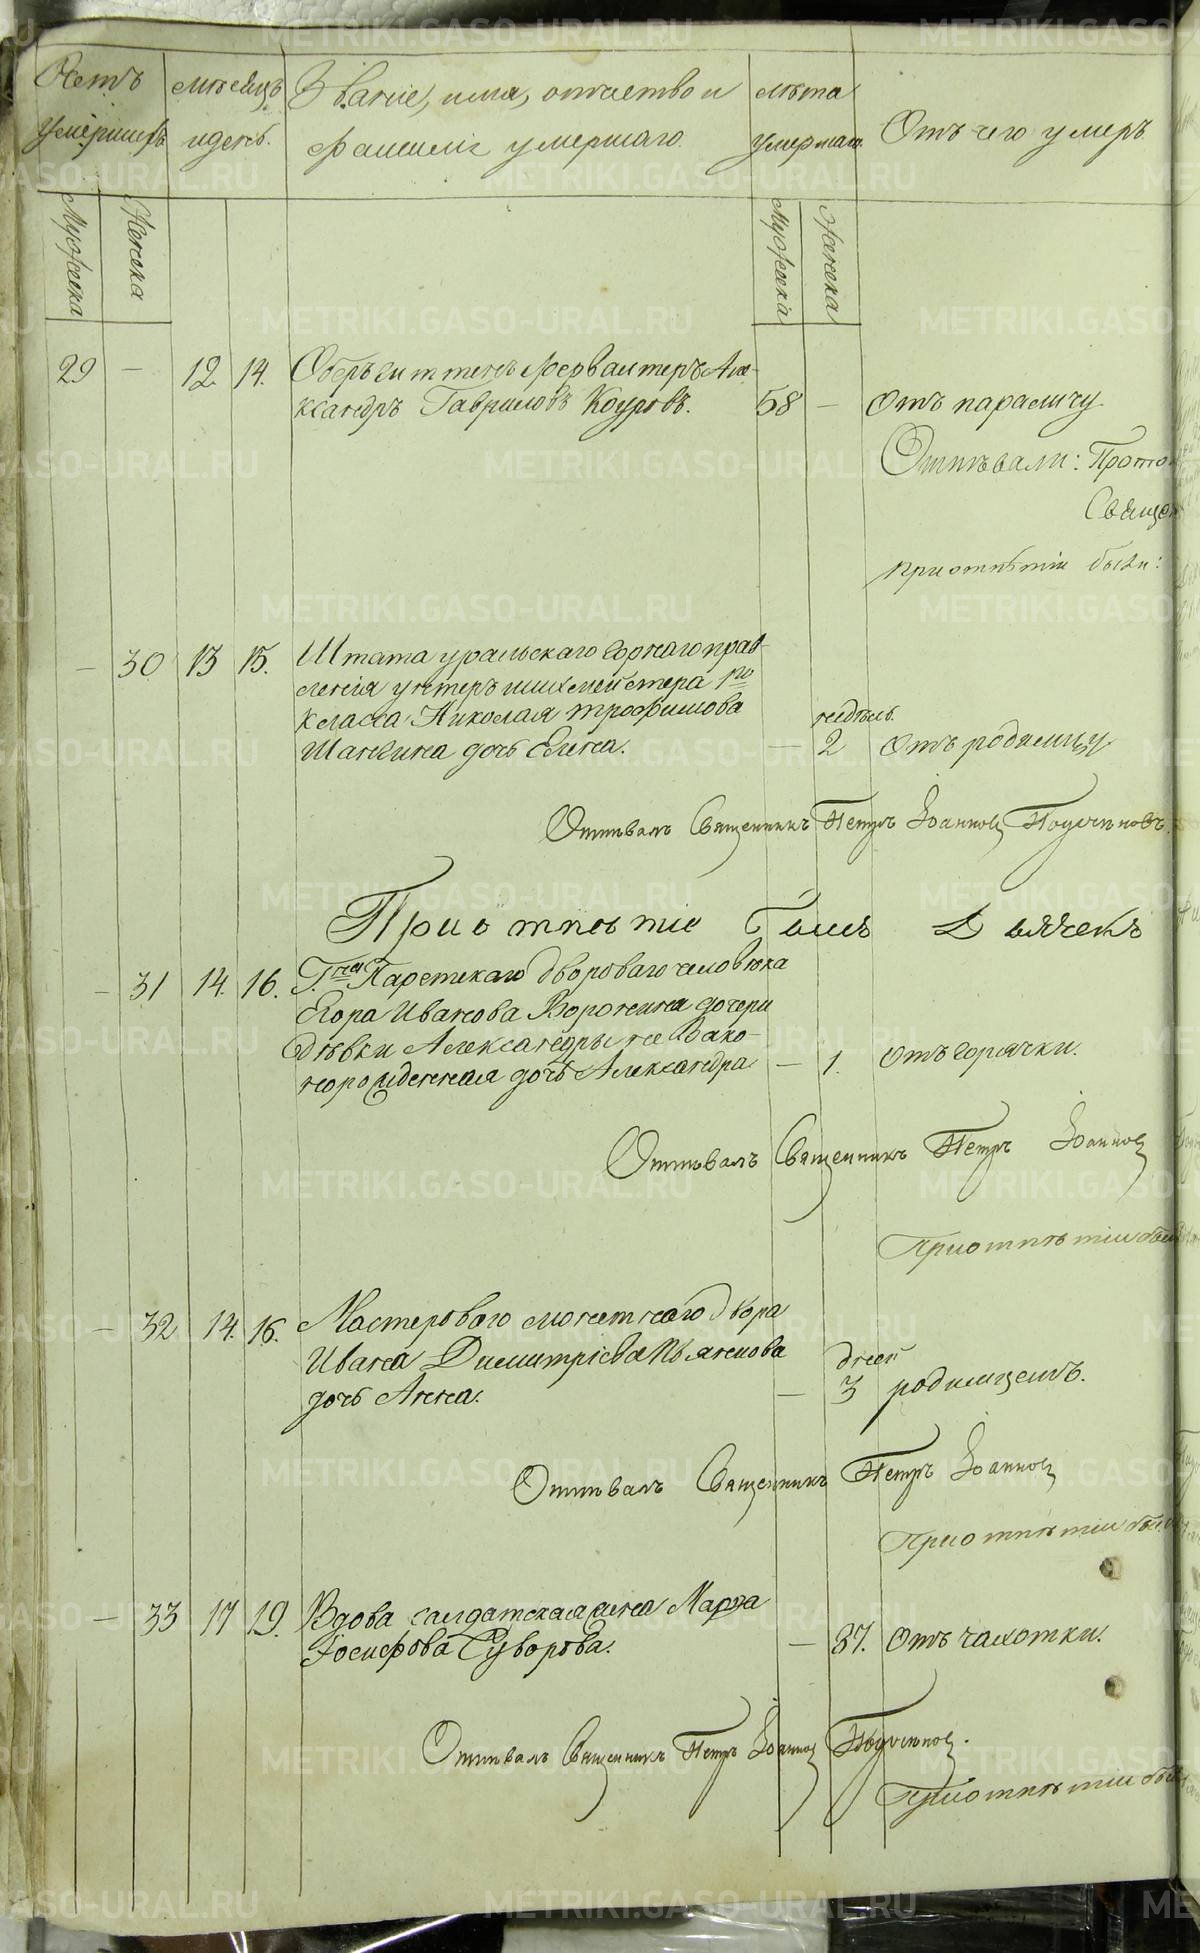 Счетъ умершихъ
мѣсяцъ и день.
Званіе, имя, отчество и
фамилія умершаго.
лѣта умершаго.
Отъ чего умеръ
Мужеска
Женска
Мужеска
Женска
29 — 12. 14. Оберъ гиттенъ фервалтеръ Але-
ксандръ Гавриловъ Коуровъ. 58 — отъ параличу
Отпѣвали: Прото
Священ
При отпѣтіи были:
— 30 13 15. Штата уральскаго горнаго прав-
ленія унтеръ шихмейстера 1го
класса Николая Трофимова
недѣль.
дочь Елена. — 2 отъ родимцу
Отпѣвалъ Священникъ Петръ Іоанновъ
При отпѣтіе былъ Дьячекъ
— 31 14. 16. двороваго человѣка
Егора Иванова Воронина дочери
дѣвки Александры не зако-
норожденная дочь Александра — 1. отъ горячки.
Отпѣвалъ Священникъ Петръ Іоанновъ
При отпѣтіи был
— 32 14. 16. Мастероваго монетнаго двора
Ивана Димитріева Пьянкова
дней
дочь Анна. — 3 родимцемъ.
Отпѣвалъ Священникъ Петръ Іоанновъ
При отпѣтіи был
— 33 17 19. Вдова салдатская жена Марфа
Іосифова Суворова. — 37. отъ чахотки.
Отпѣвалъ Священникъ Петръ Іоанновъ
При отпѣтіи был
METRIKI.GASO-URAL.RU